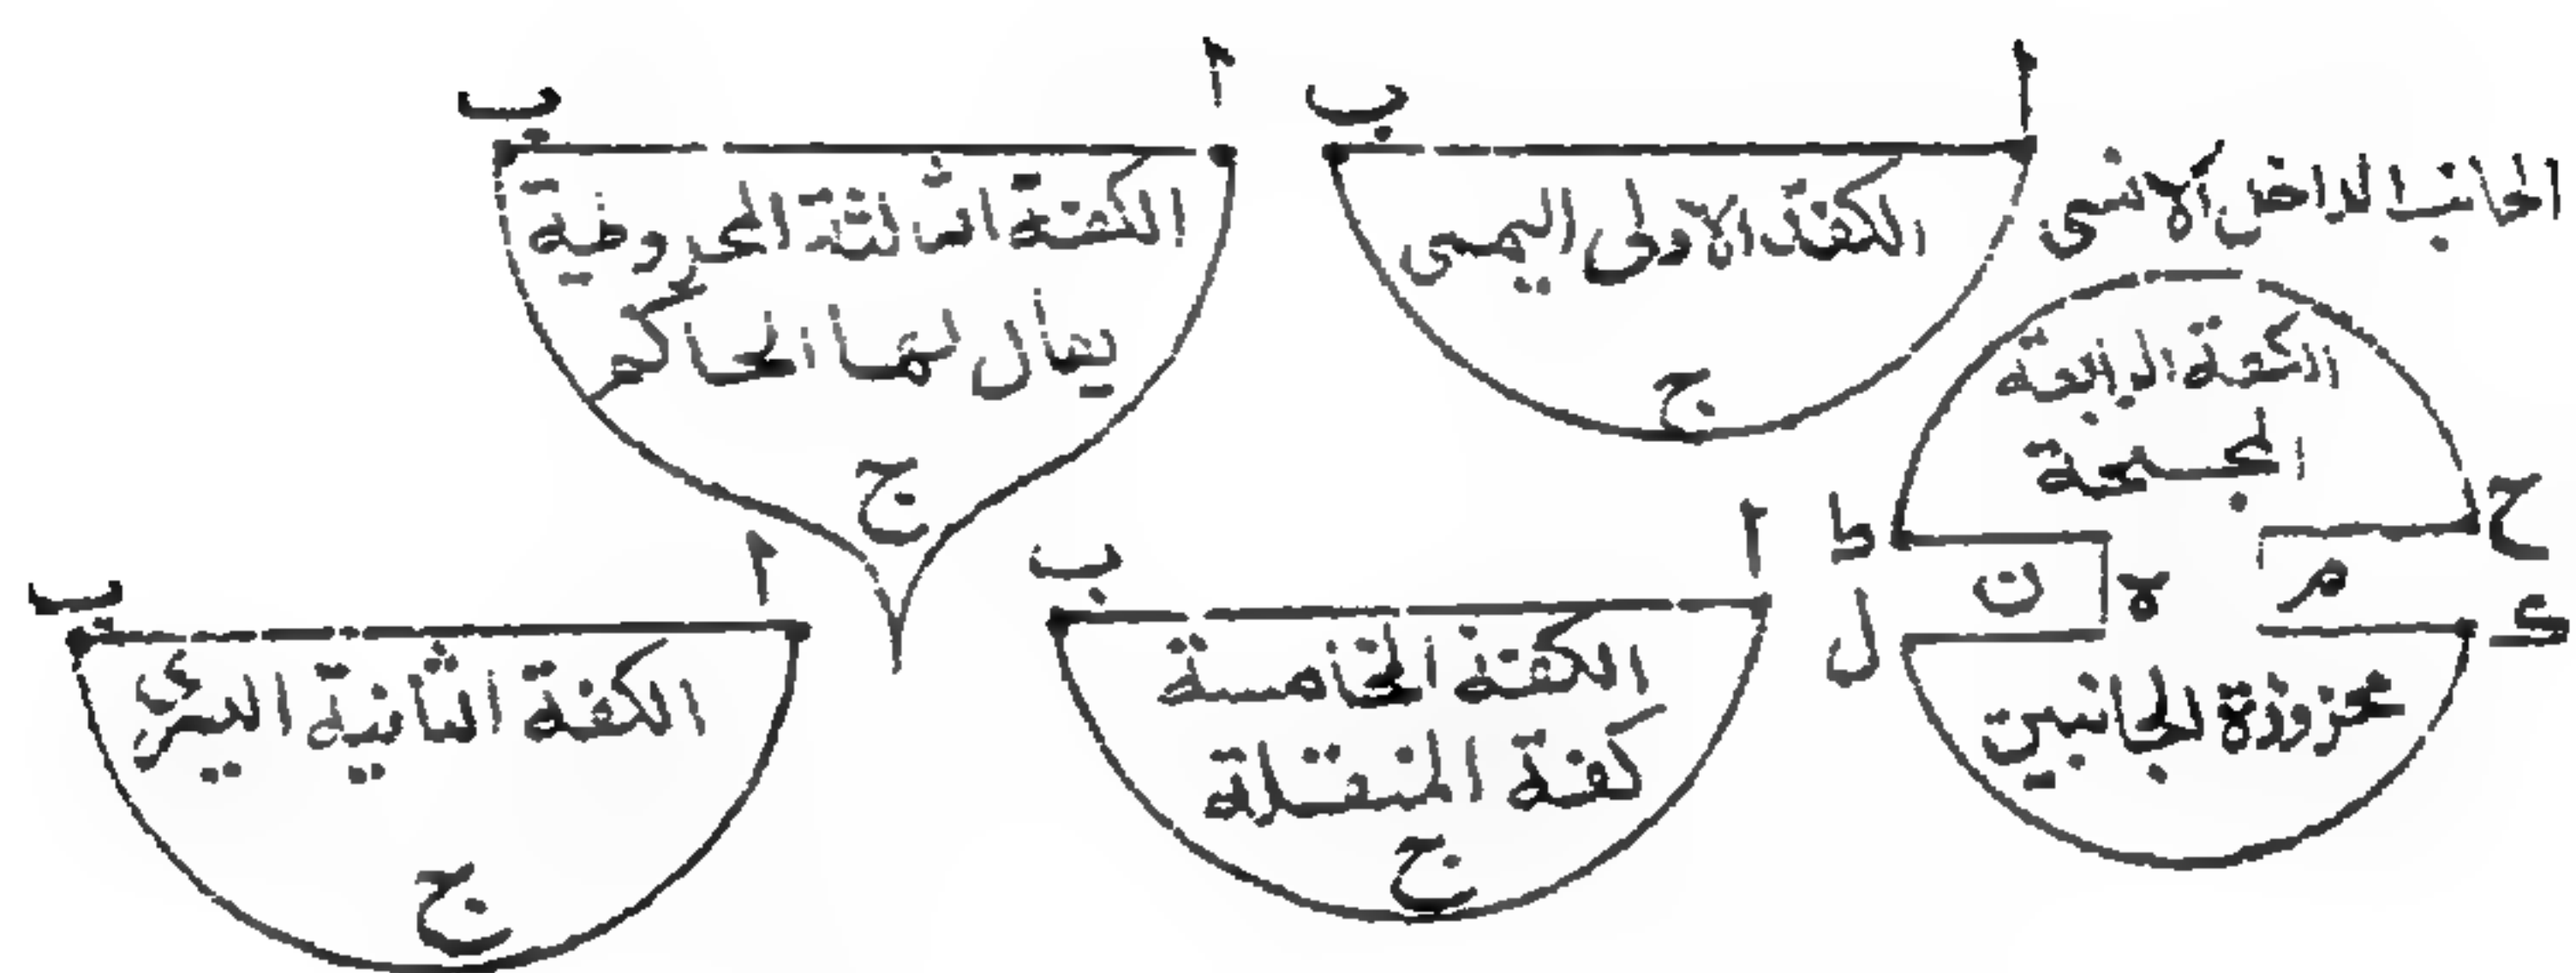 ا
ب
الجانب الداخل الانسى
الكفة الاولى اليمنى
ج
ا
ب
الكفة الثالثة المخروطية
يقال لها الحاكم
ج
الكفة الرابعة
المجنحة
ح
ط
م
ه
ن
ى
ل
محزوزة الجانبين
ا
ب
الكفة الخامسة
كفة المنقلة
ج
ا
ب
الكفة الثانية اليسرى
ج